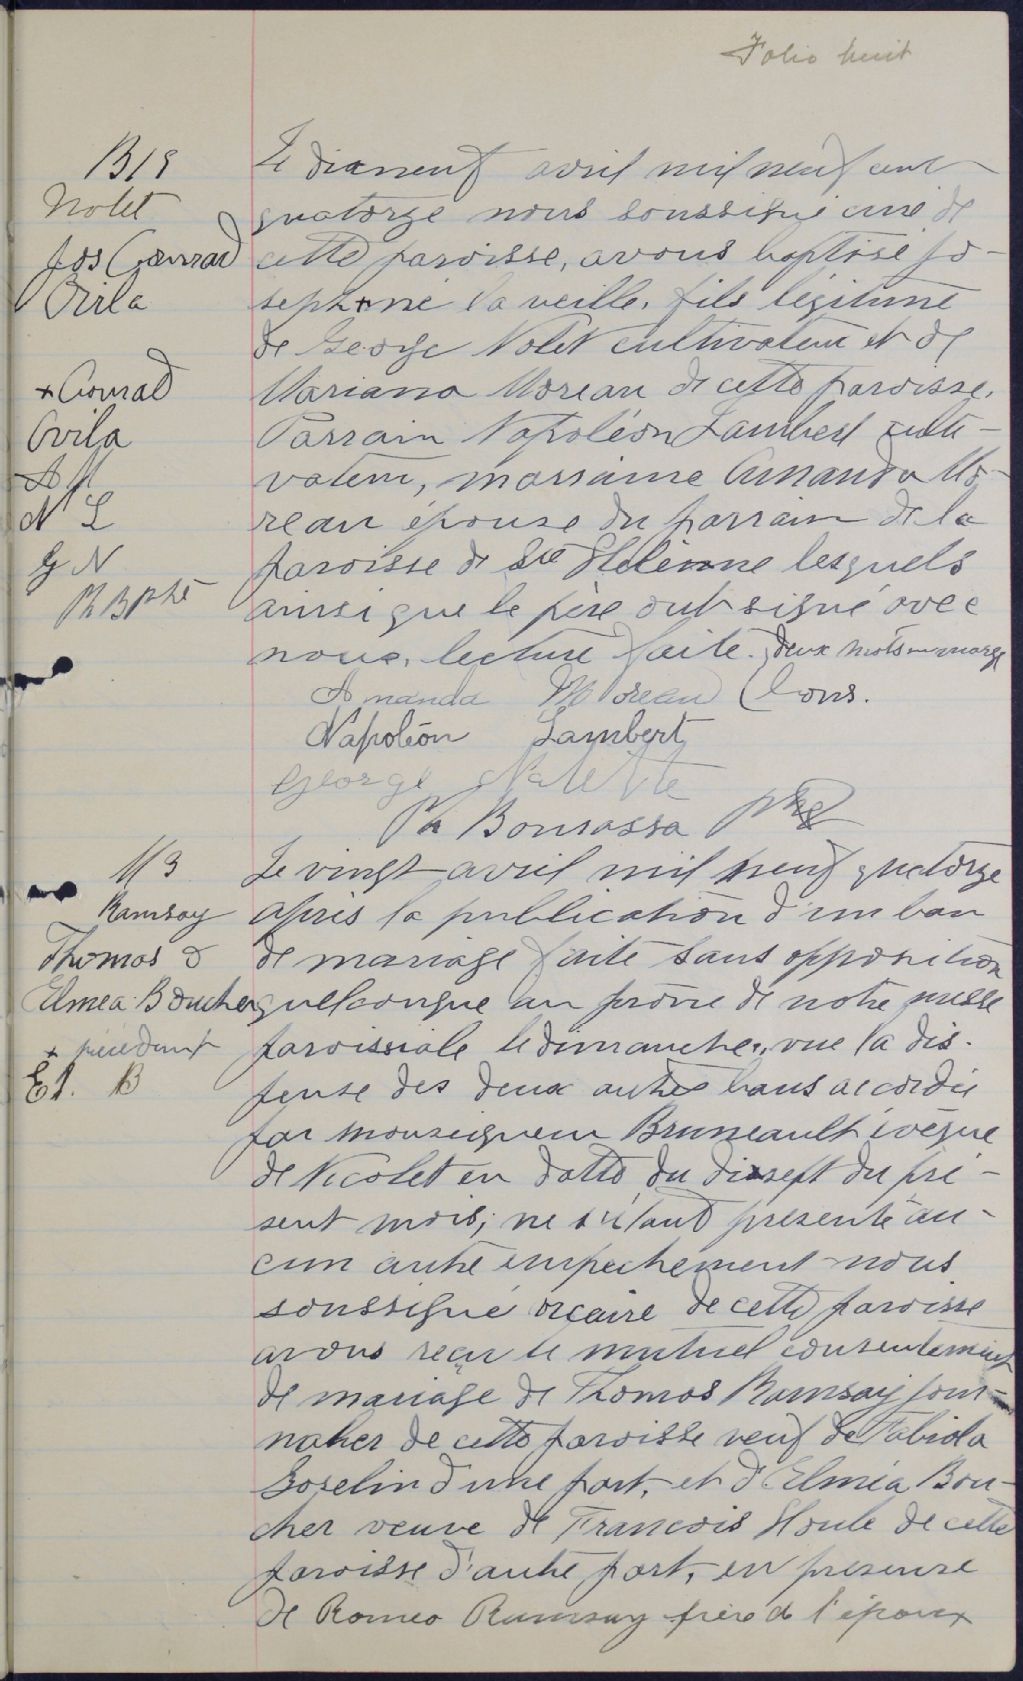 Folio huit
B19
Nolet
Jos Conrad
Ovila
+ Conrad
Ovila
A M
N L
G N
Ph B ptre
Le dixneuf avril mil neuf cent
quatorze nous soussigné curé de
cette paroisse, avons baptisé Jo-
seph + né la veille, fils légitime
de George Nolet cultivateur et de
Marianna Moreau de cette paroisse.
Parrain Napoléon Lambert culti-
vateur, marraine Amanda Mo-
reau épouse du parrain de la
paroisse de Ste Hélènne lesquels
ainsi que le père ont signé avec
nous, lecture faite. deux mots en marge
Amanda Moreau bons.
Napoléon Lambert
George Nolette
Ph Bourassa ptre
M3
Ramsay
Thomas &
Elmea Boucher
+ précédent
El. B
Le vingt avril mil neuf quatorze
après la publication d'un ban
de mariage faite sans opposition
quelconque au prône de notre messe
paroissiale le dimanche, vue la dis-
pense des deux autres bans accordée
par monseigneur Bruneault évêque
de Nicolet en datte du dixsept du pré-
sent mois; ne s'étant présenté au-
cun autre empêchement nous
soussigné vicaire de cette paroisse
avons reçu le mutuel consentement
de mariage de Thomas Ramsay jour-
nalier de cette paroisse veuf de Fabiola
Goselin d'une part, et d'Elméa Bou-
cher veuve de Francois Houle de cette
paroisse d'autre part, en présence
de Romeo Ramsay frère de l'époux